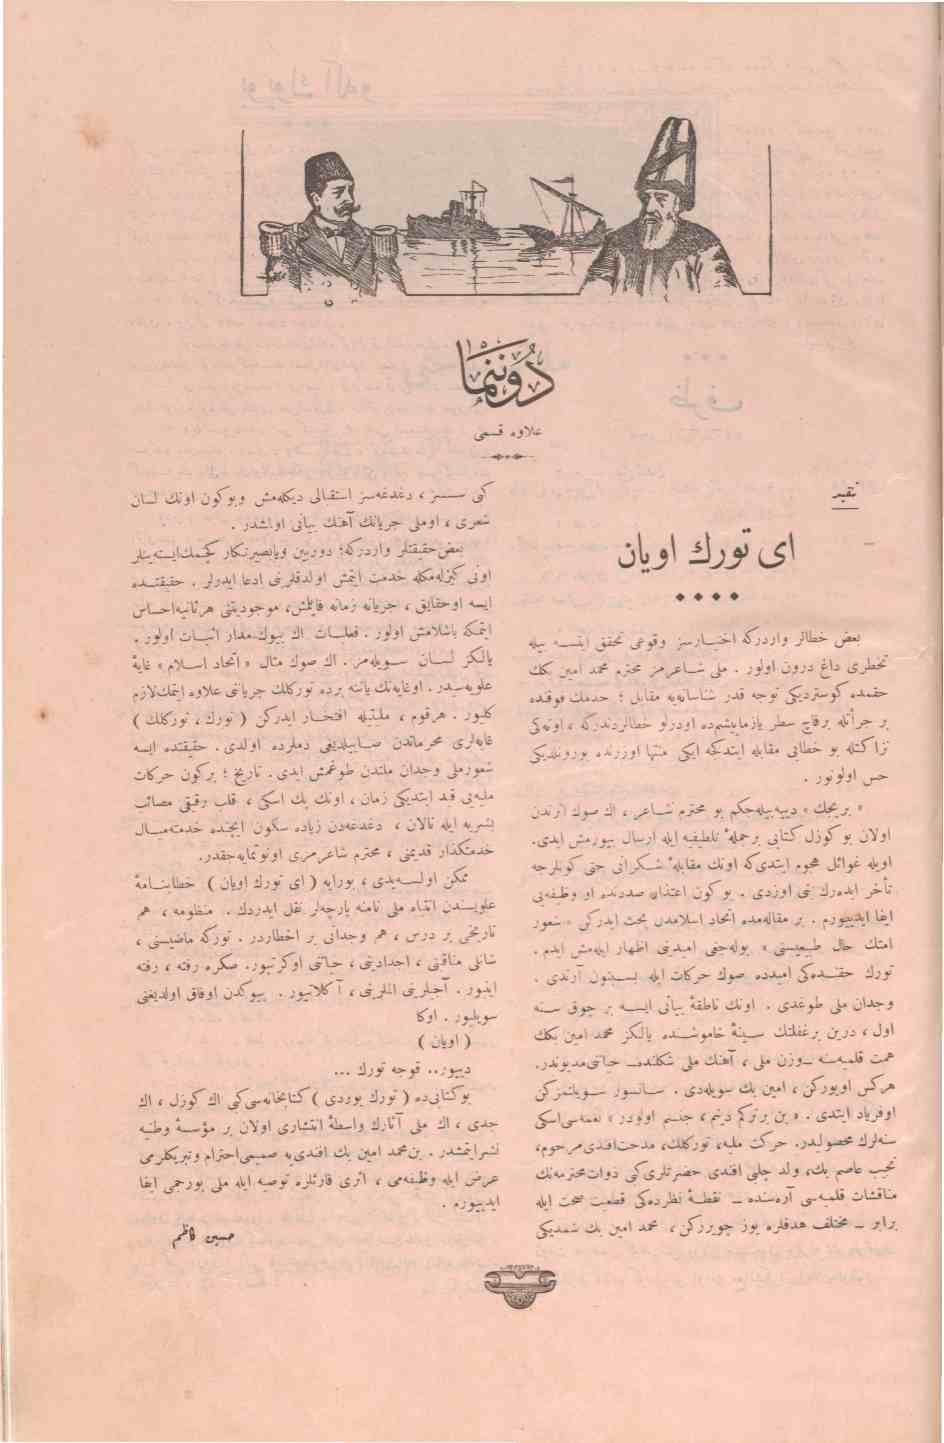 دوننما
علاوه قسمی
تنقید
ای تورك اویان
بعض خطالر واردركه اختیارسز وقوعی تحقق ایتسه بیله
تخطری داغ درون اولور . ملی شاعرمز محترم محمد امین بكك
حقمده كوستردیكی توجه قدر شناسانه‌یه مقابل ؛ حدمك فوقنده
بر جرأتله برقاچ سطر یازمامیشمده اودرلو خطالردندركه ، اونه‌كی
نزاكتله بو خطابی مقابله ایتدكجه ایكی منتها اوزرنده یورولدیكی
حس اولونور .
« بریجك » دییه‌بیله‌جكم بو محترم شاعر ، اك صوك اثرندن
اولان بو كوزل كتابی برجملهٔ تلطیفیه ایله ارسال بیورمش ایدی.
اویله غوائل هجوم ایتدی‌كه اونك مقابلهٔ شكرانی حتی كونلرجه
تأخر ایده‌رك بنی اوزدی . بوكون اعتذار صددنده او وظیفه‌یی
ایفا ایدییورم . بر مقاله‌مده اتحاد اسلامدن بحث ایدركن « شعور
امتك حال طبیعیسنی » بوله‌جغی امیدینی اظهار ایله‌مش ایدم .
تورك حقنده‌كی امیدده صوك حركات ایله بسبتون آرتدی .
وجدان ملی طوغدی . اونك ناطقهٔ بیانی ایسه بر چوق سنه
اول ، درین برغفلتك سینهٔ خاموشنده یالكز محمد امین بكك
همت قلمیه‌سنه ــ وزن ملی ، آهنك ملی شكلنده ــ حیاتنی مدیوندر.
هركس اویوركن ، امین بك سویله‌دی . سانسور سویلتمزكن
اوفریاد ایتدی . « بن بر تركم دینم ، جنسم اولودر » نغمه‌سی اسكی
سنه‌لرك محصولیدر. حركت ملیه، توركلك، مدحت‌افندی مرحوم،
نجیب عاصم بك، ولد چلبی افندی حضرتلری كبی ذوات محترمه‌نك
مناقشات قلمیه‌سی آره‌سنده ــ نقطهٔ نظرده‌كی قطعیت صحت ایله
برابر ــ مختلف هدفلره یوز چویرركن، محمد امین بك شمدیكی
كبی سسسز ، دغدغه‌سز استقبالی دیكله‌مش وبوكون اونك لسان
شعری ، اوملی جریانك آهنك بیانی اولمشدر .
بعض حقیقتلر واردركه؛ دوربین ویابصیرتكار كچینمك‌ایسته‌ینلر
اونی كیزله‌مكله خدمت ایتمش اولدقلرینی ادعا ایدرلر . حقیقتده
ایسه اوحقایق ، جریانه زمانه قاتلمش، موجودیتنی هرثانیه‌احساس
ایتمكه باشلامش اولور . فعلیات اك بیوك‌مدار اثبات اولور .
یالكز لسان سویله‌مز. اك صوك مثال « اتحاد اسلام » غایهٔ
علویه‌سیدر. اوغایه‌نك یاننه برده توركلك جریاننی علاوه ایتمك‌لازم
كلیور . هرقوم ، ملیتیله افتخار ایدركن ( تورك ، توركلك )
غایه‌لری محرماتدن صاییلدیغی دملرده اولدی. حقیقتده ایسه
شعورملی وجدان ملتدن طوغمش ایدی . تاریخ ؛ بركون حركات
ملیه‌یی قید ایتدیكی زمان ، اونك پك اسكی ، قلب رقیق مصائب
بشریه ایله نالان ، دغدغه‌دن زیاده سكون ایچنده خدمه‌میال
خدمتكذار قدیمنی ، محترم شاعرمزی اونوتمایه‌جقدر.
ممكن اولسه‌یدی ، بورایه ( ای تورك اویان ) خطابنامهٔ
علویسندن انتباه ملی نامنه پارچه‌لر نقل ایدردك . منظومه ، هم
تاریخی بر درس ، هم وجدانی بر اخطاردر. توركه ماضیسنی ،
شانلی مناقبنی ، اجدادینی ، حیاتنی اوكرتیور. صكره رفته ، رفته
اینیور . آجیلرینی الملرینی ، آكلاتیور. بیوكدن اوفاق اولدیغنی
سویلیور . اوكا
( اویان )
دییور.. قوجه تورك ...
بوكتابی‌ده ( تورك یوردی ) كتابخانه‌سی‌كبی اك كوزل ، اك
جدی ، اك ملی آثارك واسطهٔ انتشاری اولان بر مؤسسهٔ وطنیه
نشرایتمشدر. بن‌محمد امین بك افندی‌یه صمیمی‌احترام وتبریكلرمی
عرض ایله وظیفه‌می ، اثری قارئلره توصیه ایله ملی بورجمی ایفا
ایدییورم .
حسین كاظم